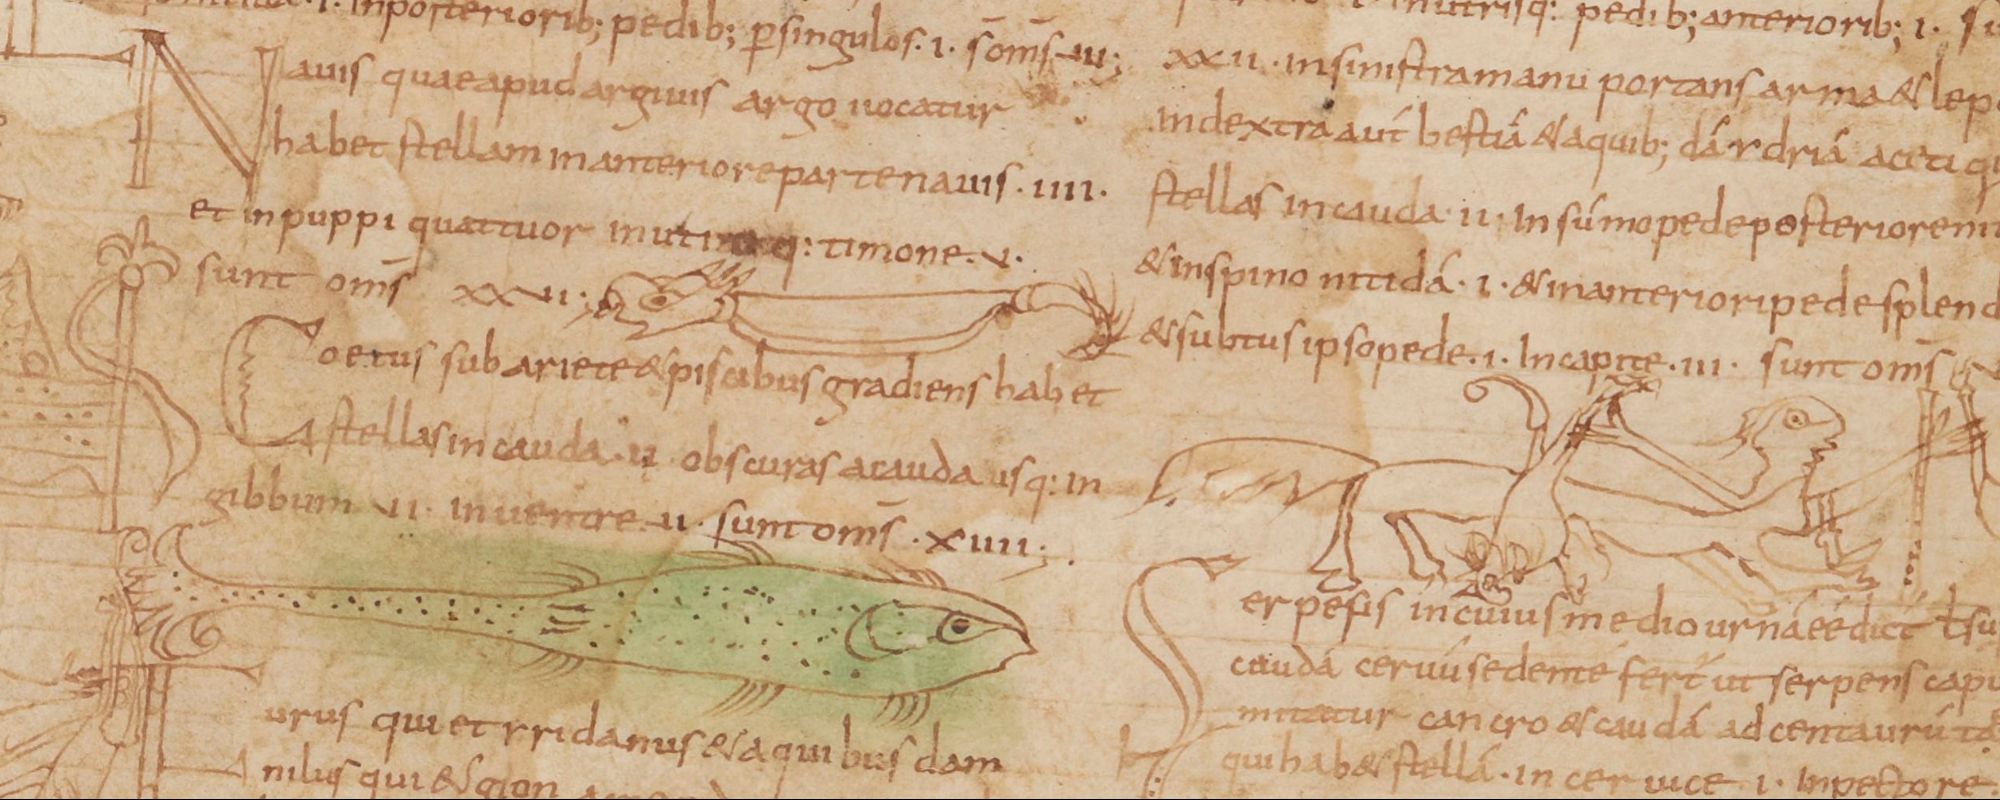 inposteriorib; pedib; p singulos. i. s̄ om̄s. uii;
Nauis quae apud arguiis argo uocatur
habet stellam in anteriore parte nauis . iiii.
et in puppi quattuor in utraq: timone. v.
sunt om̄s xxvii;
Coetus sub ariete & piscibus gradiens habet
stellas in cauda . ii obscuras a cauda usq: in
gibbum vii. in uentre. ii. sunt om̄s . xiiii;
urus qui et rridanus & a quibus dam
nilus qui & gion
in utrisq: pedib; anteriorib; i.
xxii . in sinistra manu portans arma & lep
in dextra aut́ bestiá & aquib; dá r driá
stellas in cauda ii. In súmo pede posteriore
& in spino nitidá. i. & in anteriori pede splend
& subtus ipso pede. i. In capite . iii. sunt om̄s
Serpens in cuius medio urná eé dict́
caudá ceruú sedente fert ut serpens capu
mitatur cancro & caudá ad centaurú
qui hab& stellá . in ceruice i. In pectore.